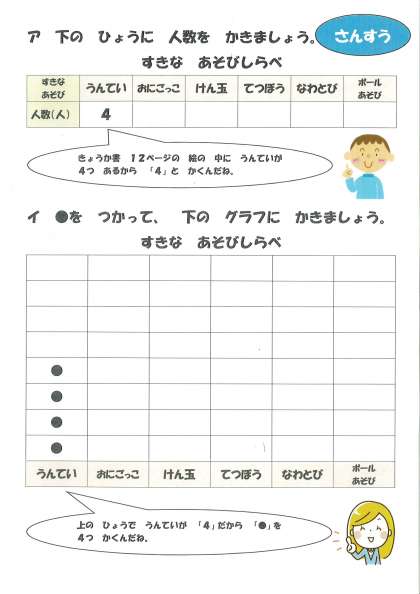 さんすう
ア 下の ひょうに 人数を かきましょう。
すきな あそびしらべ
すきな
あそび
うんてい
おにごっこ
けん玉
てつぼう
なわとび
ボール
あそび
人数(人)
4
きょうか書 12ページの 絵の 中に うんていが
4つ あるから 「4」と かくんだね。
イ ●を つかって、 下の グラフに かきましょう。
すきな あそびしらべ
うんてい
おにごっこ
けん玉
てつぼう
なわとび
ボール
あそび
上の ひょうで うんていが 「4」だから 「●」を
4つ かくんだね。